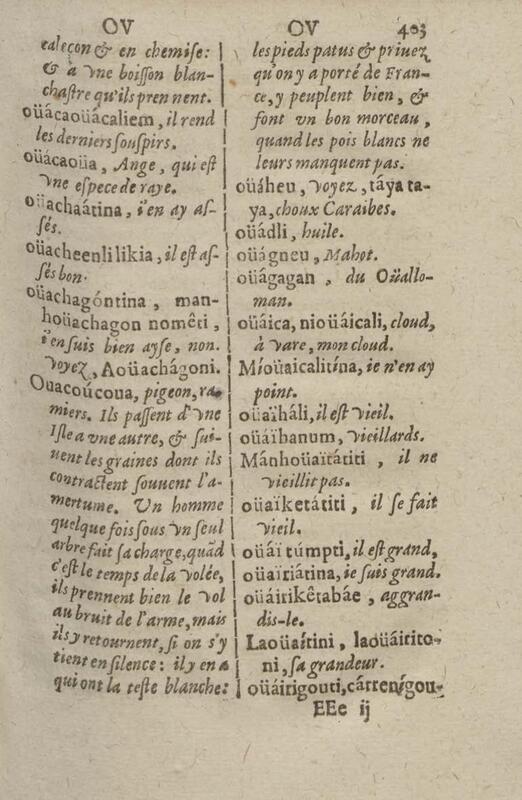 OV
caleçon & en chemise:
& à vne boisson blan-
chastre qu'ils prennent.
oüácaoüácaliem, il rend
les derniers souspirs.
oüácaoüa, Ange, qui est
vne espece de raye.
oüachaátina, i'en ay as-
sés.
oüacheenlilikia, il est as-
sés bon.
oüachagóntina, man-
hoüachagon nomêti,
i'en suis bien ayse, non.
voyez, Aoüachágoni.
Ouacoúcoua, pigeon, ra-
miers. Ils passent d'vne
Isle a vne autre, & sui-
uent les graines dont ils
contractent souuent l'a-
mertume. Vn homme
quelque fois sous vn seul
arbre fait sa charge, quãd
c'est le temps de la volée,
ils prennent bien le vol
au bruit de l'arme, mais
ils y retournent, si on s'y
tient en silence: il y en a
qui ont la teste blanche:
OV 403
les pieds patus & priuez
qu'on y a porté de Fran-
ce, y peuplent bien, &
font vn bon morceau,
quand les pois blancs ne
leurs manquent pas.
oüáheu, voyez, táya ta-
ya, choux Caraibes.
oüádli, huile.
oüágneu, Mahot.
oüágagan, du Oüallo-
man.
oüáica, nioüáicali, cloud,
à vare, mon cloud.
Míoüaicalitína, ie n'en ay
point.
oüaïháli, il est vieil.
oüáïhanum, vieillards.
Mánhoüaïtátiti, il ne
vieillit pas.
oüaïketátiti, il se fait
vieil.
oüáï túmpti, il est grand,
oüaïriátina, ie suis grand.
oüáirikêtabáe, aggran-
dis-le.
Laoüaítini, laoüáitito-
ni, sa grandeur.
oüáirigouti, cárrenígou-
EEe ij